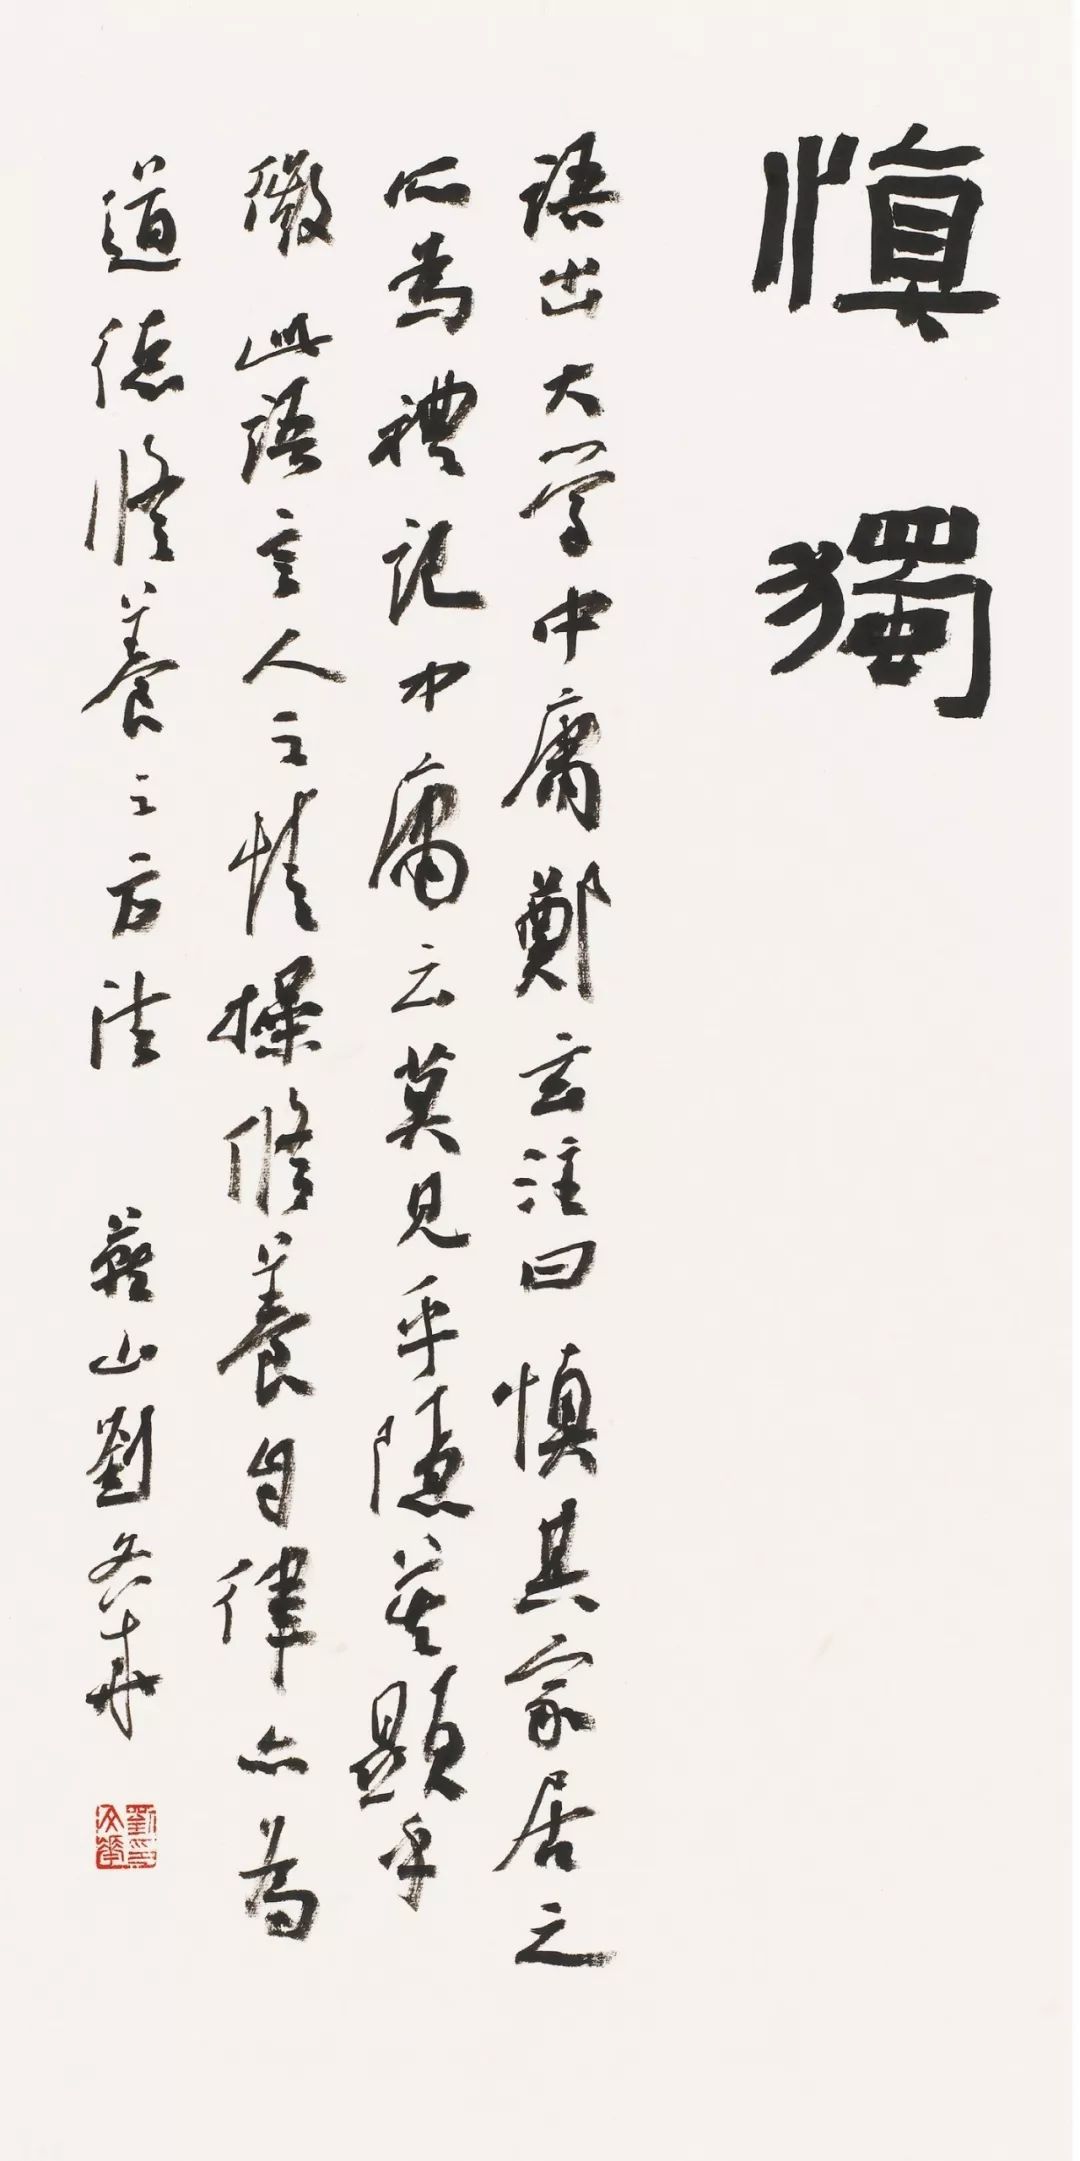 慎獨
語出大学中庸鄭玄注曰慎其家居之
所為禮記中庸云莫見乎隱莫顯乎
微此語言人之情操修養自律亦為
道德修養之方法 燕山劉文華
劉文華印